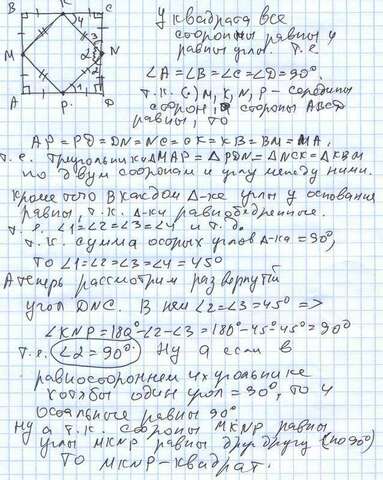 B K C
4
3
M 2 N
2
1
A P D
У квадрата все
стороны равны и
равны углы. т.е.
∠A = ∠B = ∠C = ∠D = 90°.
т.к. (·) M, K, N, P - середины
сторон, стороны ABCD
равны, то
AP = PD = DN = NC = CK = KB = BM = MA,
т.е. треугольники ΔMAP = ΔPDN = ΔNCK = ΔKBM
по двум сторонам и углу между ними.
Кроме того в каждом Δ-ке углы у основания
равны, т.к. Δ-ки равнобедренные.
т.е. ∠1=∠2=∠3=∠4 и т.д.
т.к. сумма острых углов Δ-ка = 90°,
то ∠1=∠2=∠3=∠4=45°
А теперь рассмотрим развернутый
угол DNC. В нем ∠2=∠3=45° =>
∠KNP=180°-∠2-∠3=180°-45°-45°=90°
т.е. ∠2=90°. Ну а если в
равностороннем 4х угольнике
хотябы один угол = 90°, то и
остальные равны 90°
Ну а т.к. стороны MKNP равны
углы MKNP равны друг другу (по 90°)
то MKNP-квадрат.